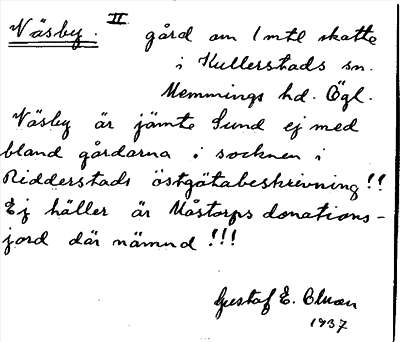 Väsby. II gård om 1 mtl skatte
i Kullerstads sn.
Memmings hd. Ögl.
Väsby är jämte Sund ej med
bland gårdarna i socknen i
Ridderstads östgötabeskrivning!!
Ej häller är Måstorps donations-
jord där nämnd!!!
Gustaf E.
1937